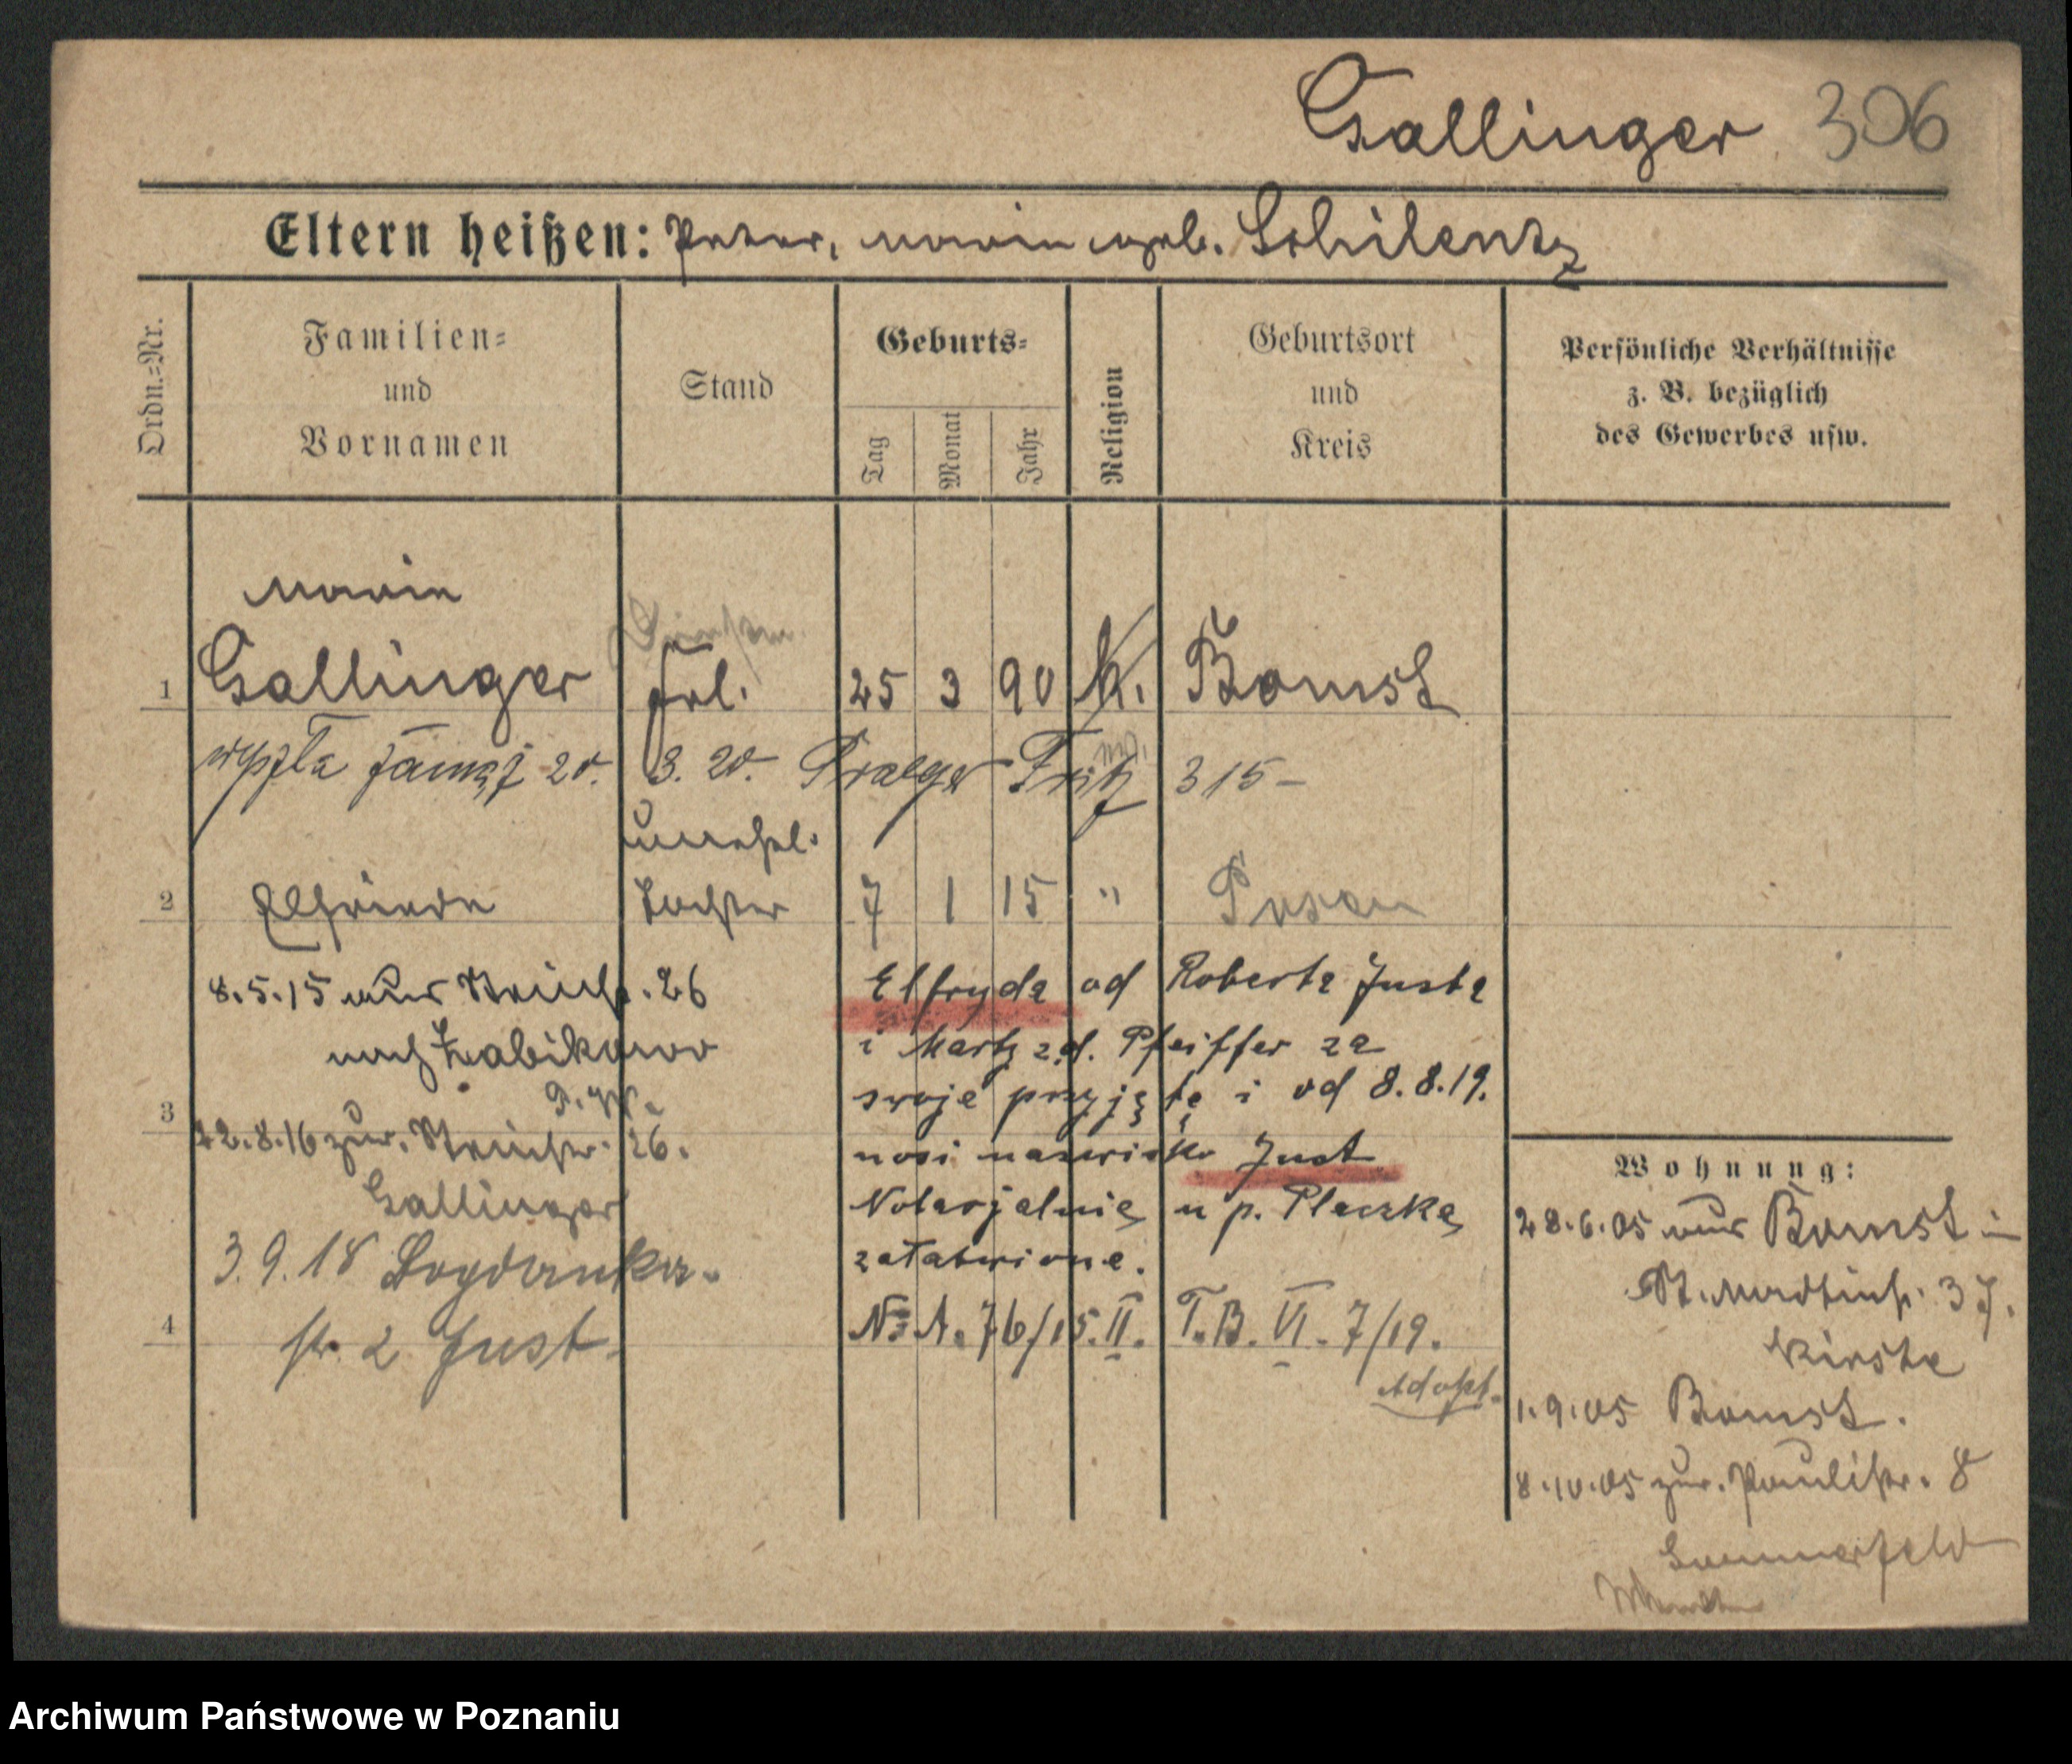 Gallinger 306
Eltern heißen: Peter, Marie geb. Schilentz
Ordn.=Nr.
Familien=
und
Vornamen
Stand
Geburts=
Tag
Monat
Jahr
Religion
Geburtsort
und
Kreis
Persönliche Verhältnisse
z. B. bezüglich
des Gewerbes usw.
Marie
1 Gallinger Frl. 25 3 90 k. Bomst
20. 3. 20. Praeger Fritz 315-
unehel.
2 Elfriede Tochter 7 1 15 " Posen
8.5.15 aus 26
nach Zabikowo
P. W.
3 22.8.16 zur. 26.
Gallinger
3.9.18 Bogdanka-
4 str. 2 Just.
Elfryda od Roberta Justa
i Marty z d. Pfeiffer za
swoje przyjętę i od 8.8.19.
nosi nazwisko Just
Notarjalnie u p. Pleczke
załatwione.
No A. 76/15.II. T.B. VI. 7/19.
Adopt.
Wohnung:
28.6.05 aus Bomst in
St. Martinstr. 37.
Kirste
1.9.05 Bomst.
8.10.05 zur. Paulistr. 8
Sommerfeld
Archiwum Państwowe w Poznaniu